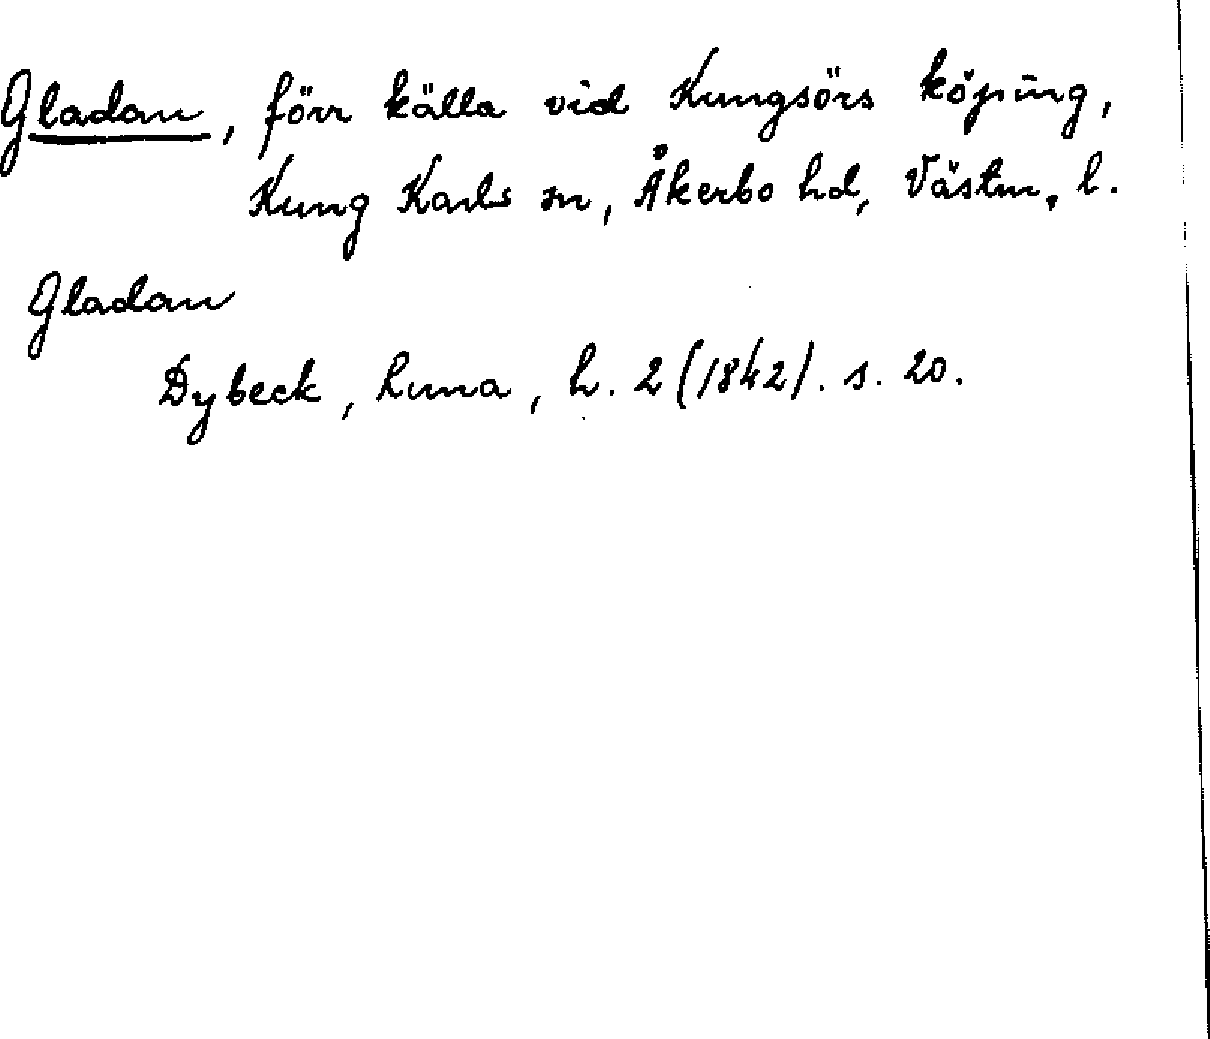 Gladan, förr källa vid Kungsörs köping,
Kung Karls sn, Åkerbo hd, Västm. l.
Gladan
Dybeck, Runa, h. 2 (1842). s. 20.